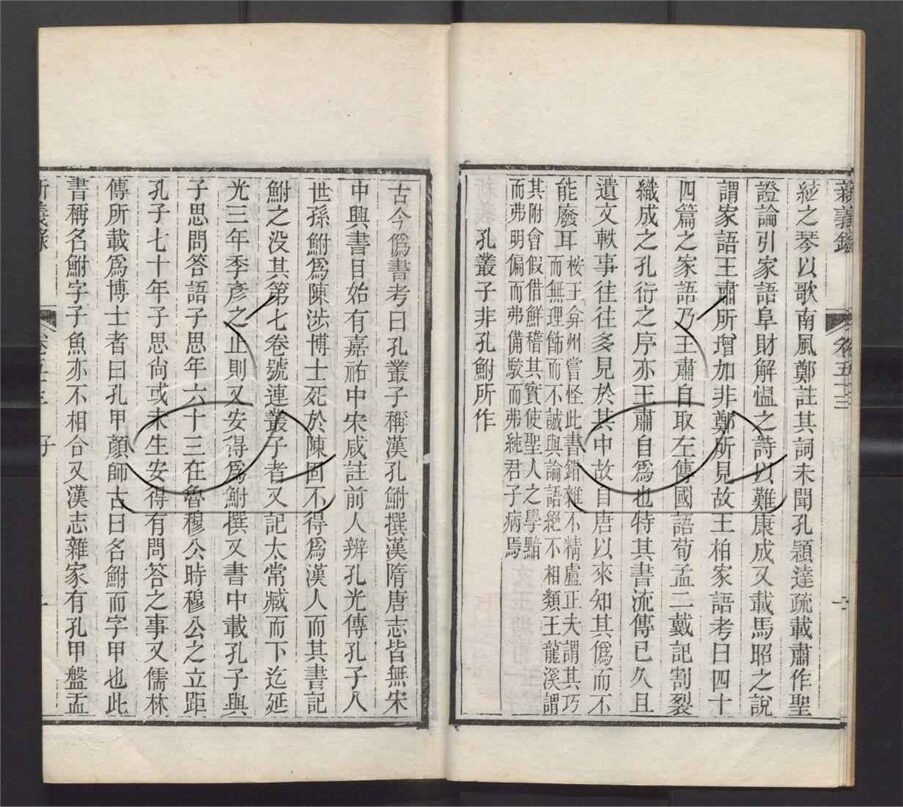 新義錄
卷五十三
絃之琴以歌南風鄭註其詞未聞孔穎達疏載肅作聖
證論引家語阜財解慍之詩以難康成又載馬昭之說
謂家語王肅所增加非鄭所見故王柏家語考曰四十
四篇之家語乃王肅自取左傳國語荀孟二戴記割裂
織成之孔衍之序亦王肅自爲也特其書流傳已久且
遺文軼事往往多見於其中故自唐以來知其僞而不
能廢耳
桉王弇州嘗怪此書錯雜不精盧正夫謂其巧
而無理飾而不誠與論語絕不相類王龍溪謂
其附會假借鮮稽其實使聖人之學黯
而弗明偏而弗備駁而弗純君子病焉
孔叢子非孔鮒所作
古今僞書考曰孔叢子稱漢孔鮒撰漢隋唐志皆無宋
中興書目始有嘉祐中宋咸註前人辨孔光傳孔子八
世孫鮒爲陳涉博士死於陳固不得爲漢人而其書記
鮒之没其第七卷號連叢子者又記太常臧而下迄延
光三年季彥之止則又安得爲鮒撰又書中載孔子與
子思問答語子思年六十三在魯穆公時穆公之立距
孔子七十年子思尚或未生安得有問答之事又儒林
傳所載爲博士者曰孔甲顏師古曰名鮒而字甲也此
書稱名鮒字子魚亦不相合又漢志雜家有孔甲盤盂
新義錄
卷五十三 子